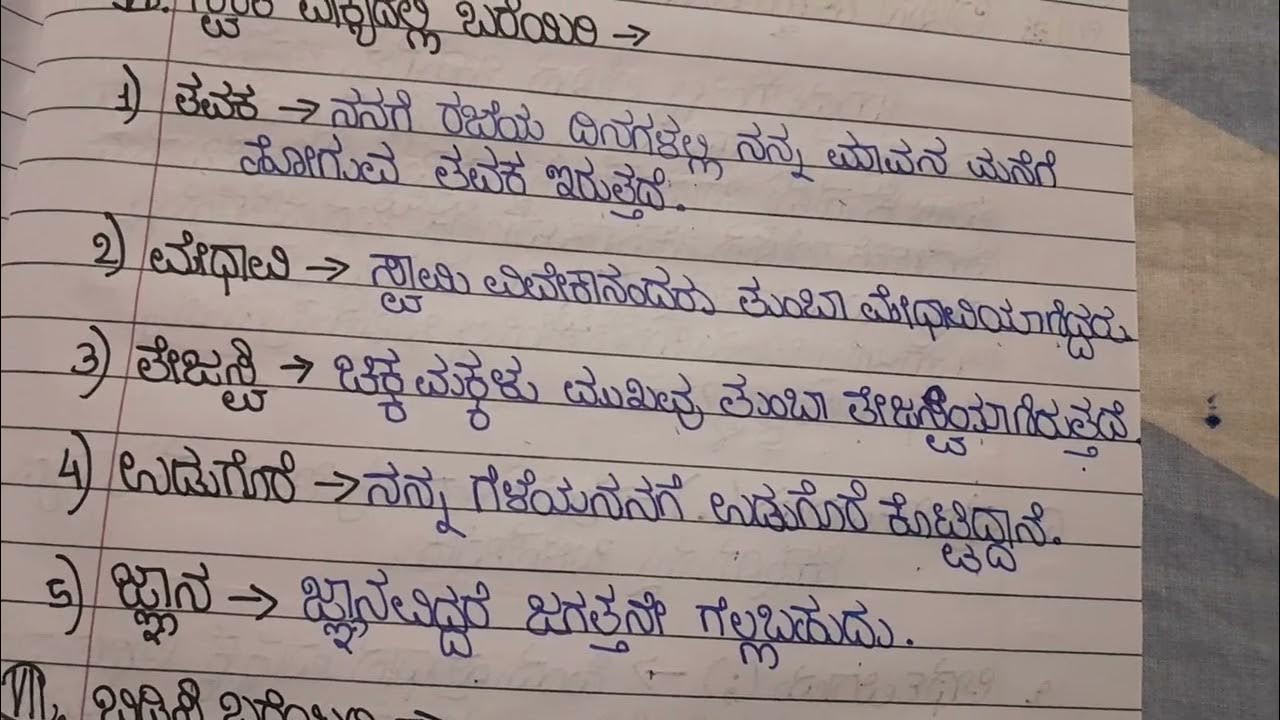 ಸ್ವಂತ ವಾಕ್ಯದಲ್ಲಿ ಬರೆಯಿರಿ →
1) ತವಕ → ನನಗೆ ರಜೆಯ ದಿನಗಳಲ್ಲಿ ನನ್ನ ಮಾವನ ಮನೆಗೆ
ಹೋಗುವ ತವಕ ಇರುತ್ತದೆ.
2) ಮೇಧಾವಿ → ಸ್ವಾಮಿ ವಿವೇಕಾನಂದರು ತುಂಬಾ ಮೇಧಾವಿಯಾಗಿದ್ದರು
3) ತೇಜಸ್ವಿ → ಚಿಕ್ಕ ಮಕ್ಕಳು ಮುಖವು ತುಂಬಾ ತೇಜಸ್ವಿಯಾಗಿರುತ್ತದೆ
4) ಉಡುಗೊರೆ → ನನ್ನ ಗೆಳೆಯ ನನಗೆ ಉಡುಗೊರೆ ಕೊಟ್ಟಿದ್ದಾನೆ.
5) ಜ್ಞಾನ → ಜ್ಞಾನವಿದ್ದರೆ ಜಗತ್ತನೇ ಗೆಲ್ಲಬಹುದು.
VII. ಬಿಡಿಸಿ ಬರೆಯಿರಿ →